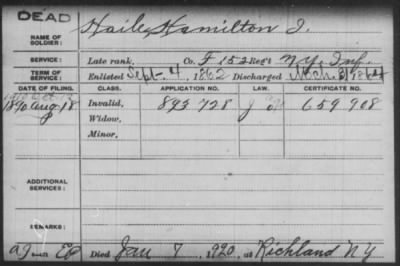 DEAD
NAME OF SOLDIER: Haile, Hamilton J.
SERVICE: Late rank, Co. F 152 Reg't N.Y. Inf.
TERM OF SERVICE: Enlisted Sept. 4, 1862 Discharged Mch.
DATE OF FILING. CLASS. APPLICATION NO. LAW. CERTIFICATE NO.
1890 Aug 18 Invalid, 893 728 J 659 908
Widow,
Minor,
ADDITIONAL SERVICES:
REMARKS:
Died Jan 7, 1920, at Richland N Y